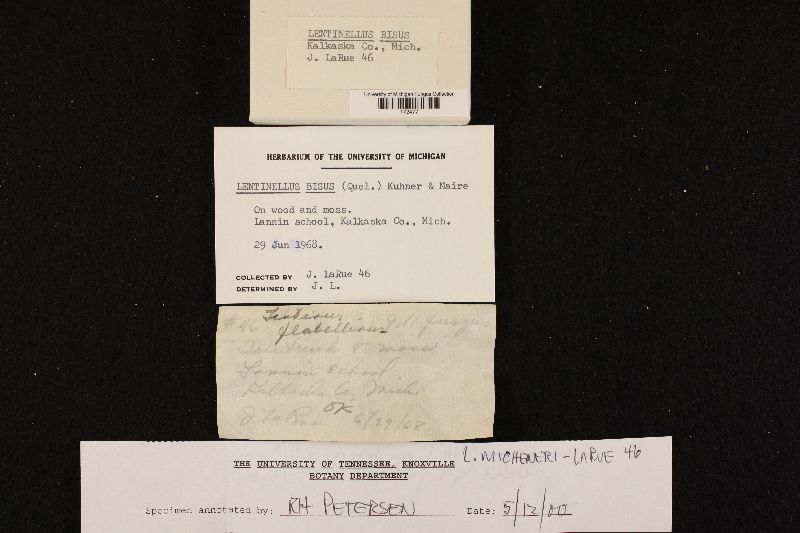 LENTINELLUS BISUS
Kalkaska Co., Mich.
J. LaRue 46
University of Michigan Fungus Collection
172477
HERBARIUM OF THE UNIVERSITY OF MICHIGAN
LENTINELLUS BISUS (Quel.) Kuhner & Maire
On wood and moss.
Lannin school, Kalkaska Co., Mich.
29 Jun 1968.
COLLECTED BY J. LaRue 46
DETERMINED BY J. L.
#46 gill fungus
flabellinus
moss
Lannin School
Kalkaska Co, Mich.
OK
J. LaRue 6/29/68
L. MICHENERI - LARUE 46
THE UNIVERSITY OF TENNESSEE, KNOXVILLE
BOTANY DEPARTMENT
Specimen annotated by: RH PETERSEN Date: 5/12/00